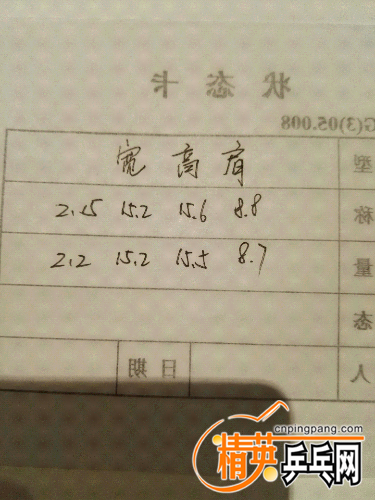 状态卡
G(3)05.008
型
宽 高 肩
称
2.15 15.2 15.6 8.8
量
2.2 15.2 15.5 8.7
态
人
日期
cnpingpang.com
精英乒乓网